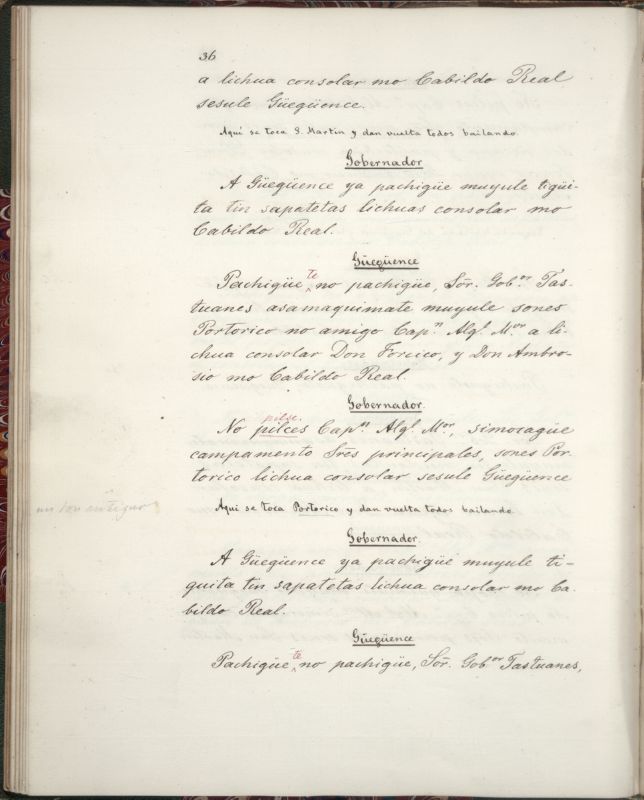 36
a lichua consolar mo Cabildo Real
sesule Güegüence.
Aquí se toca S. Martin y dan vuelta todos bailando.
Gobernador
A Güegüence ya pachigüe muyule tigüi-
ta tin sapatetas lichuas consolar mo
Cabildo Real.
Güegüence
te
Pachigüe ^ no pachigüe, Sor. Gobor Tas-
tuanes asamaquimate muyule sones
Portorico no amigo Capn. Algl. Mor. a li-
chua consolar Don Forcico, y Don Ambro-
sio mo Cabildo Real.
Gobernador.
pilse.
No pilces Capn Algl. Mor., simocagüe
campamento Sres principales, sones Por-
torico lichua consolar sesule Güegüence
un son antiguo
Aquí se toca Portorico y dan vuelta todos bailando.
Gobernador.
A Güegüence ya pachigüe muyule ti-
quita tin sapatetas lichua consolar mo Ca-
bildo Real.
Güegüence
te
Pachigüe ^ no pachigüe, Sor. Gobor Tastuanes,